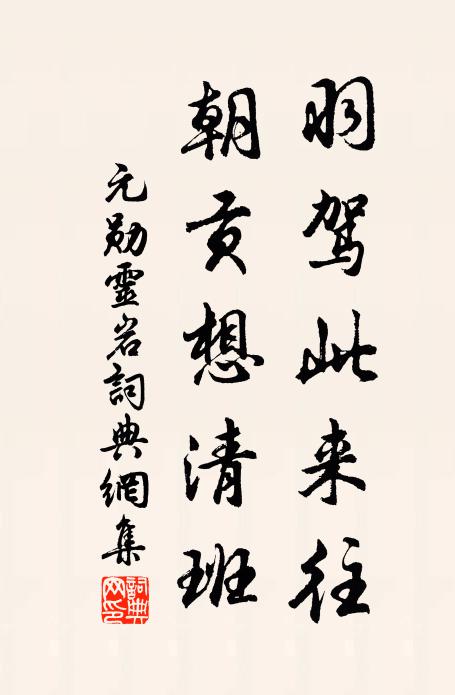 羽驾此来往
朝贡想清班
元勋靈岩詞典網集
詞典网印